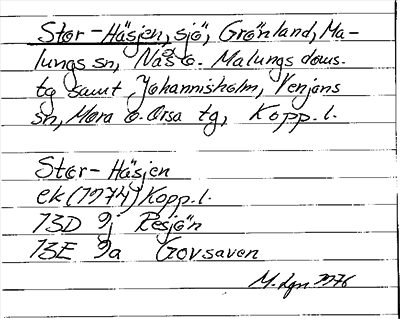 Stor-Häsjen, sjö, Grönland, Ma-
lungs sn, Nås o. Malungs doms.
tg samt Johannisholm, Venjans
sn, Mora o. Orsa tg, Kopp. l.
Stor-Häsjen
ek (1974) Kopp. l.
13D 9j Resjön
13E 9a Govsaven
1976